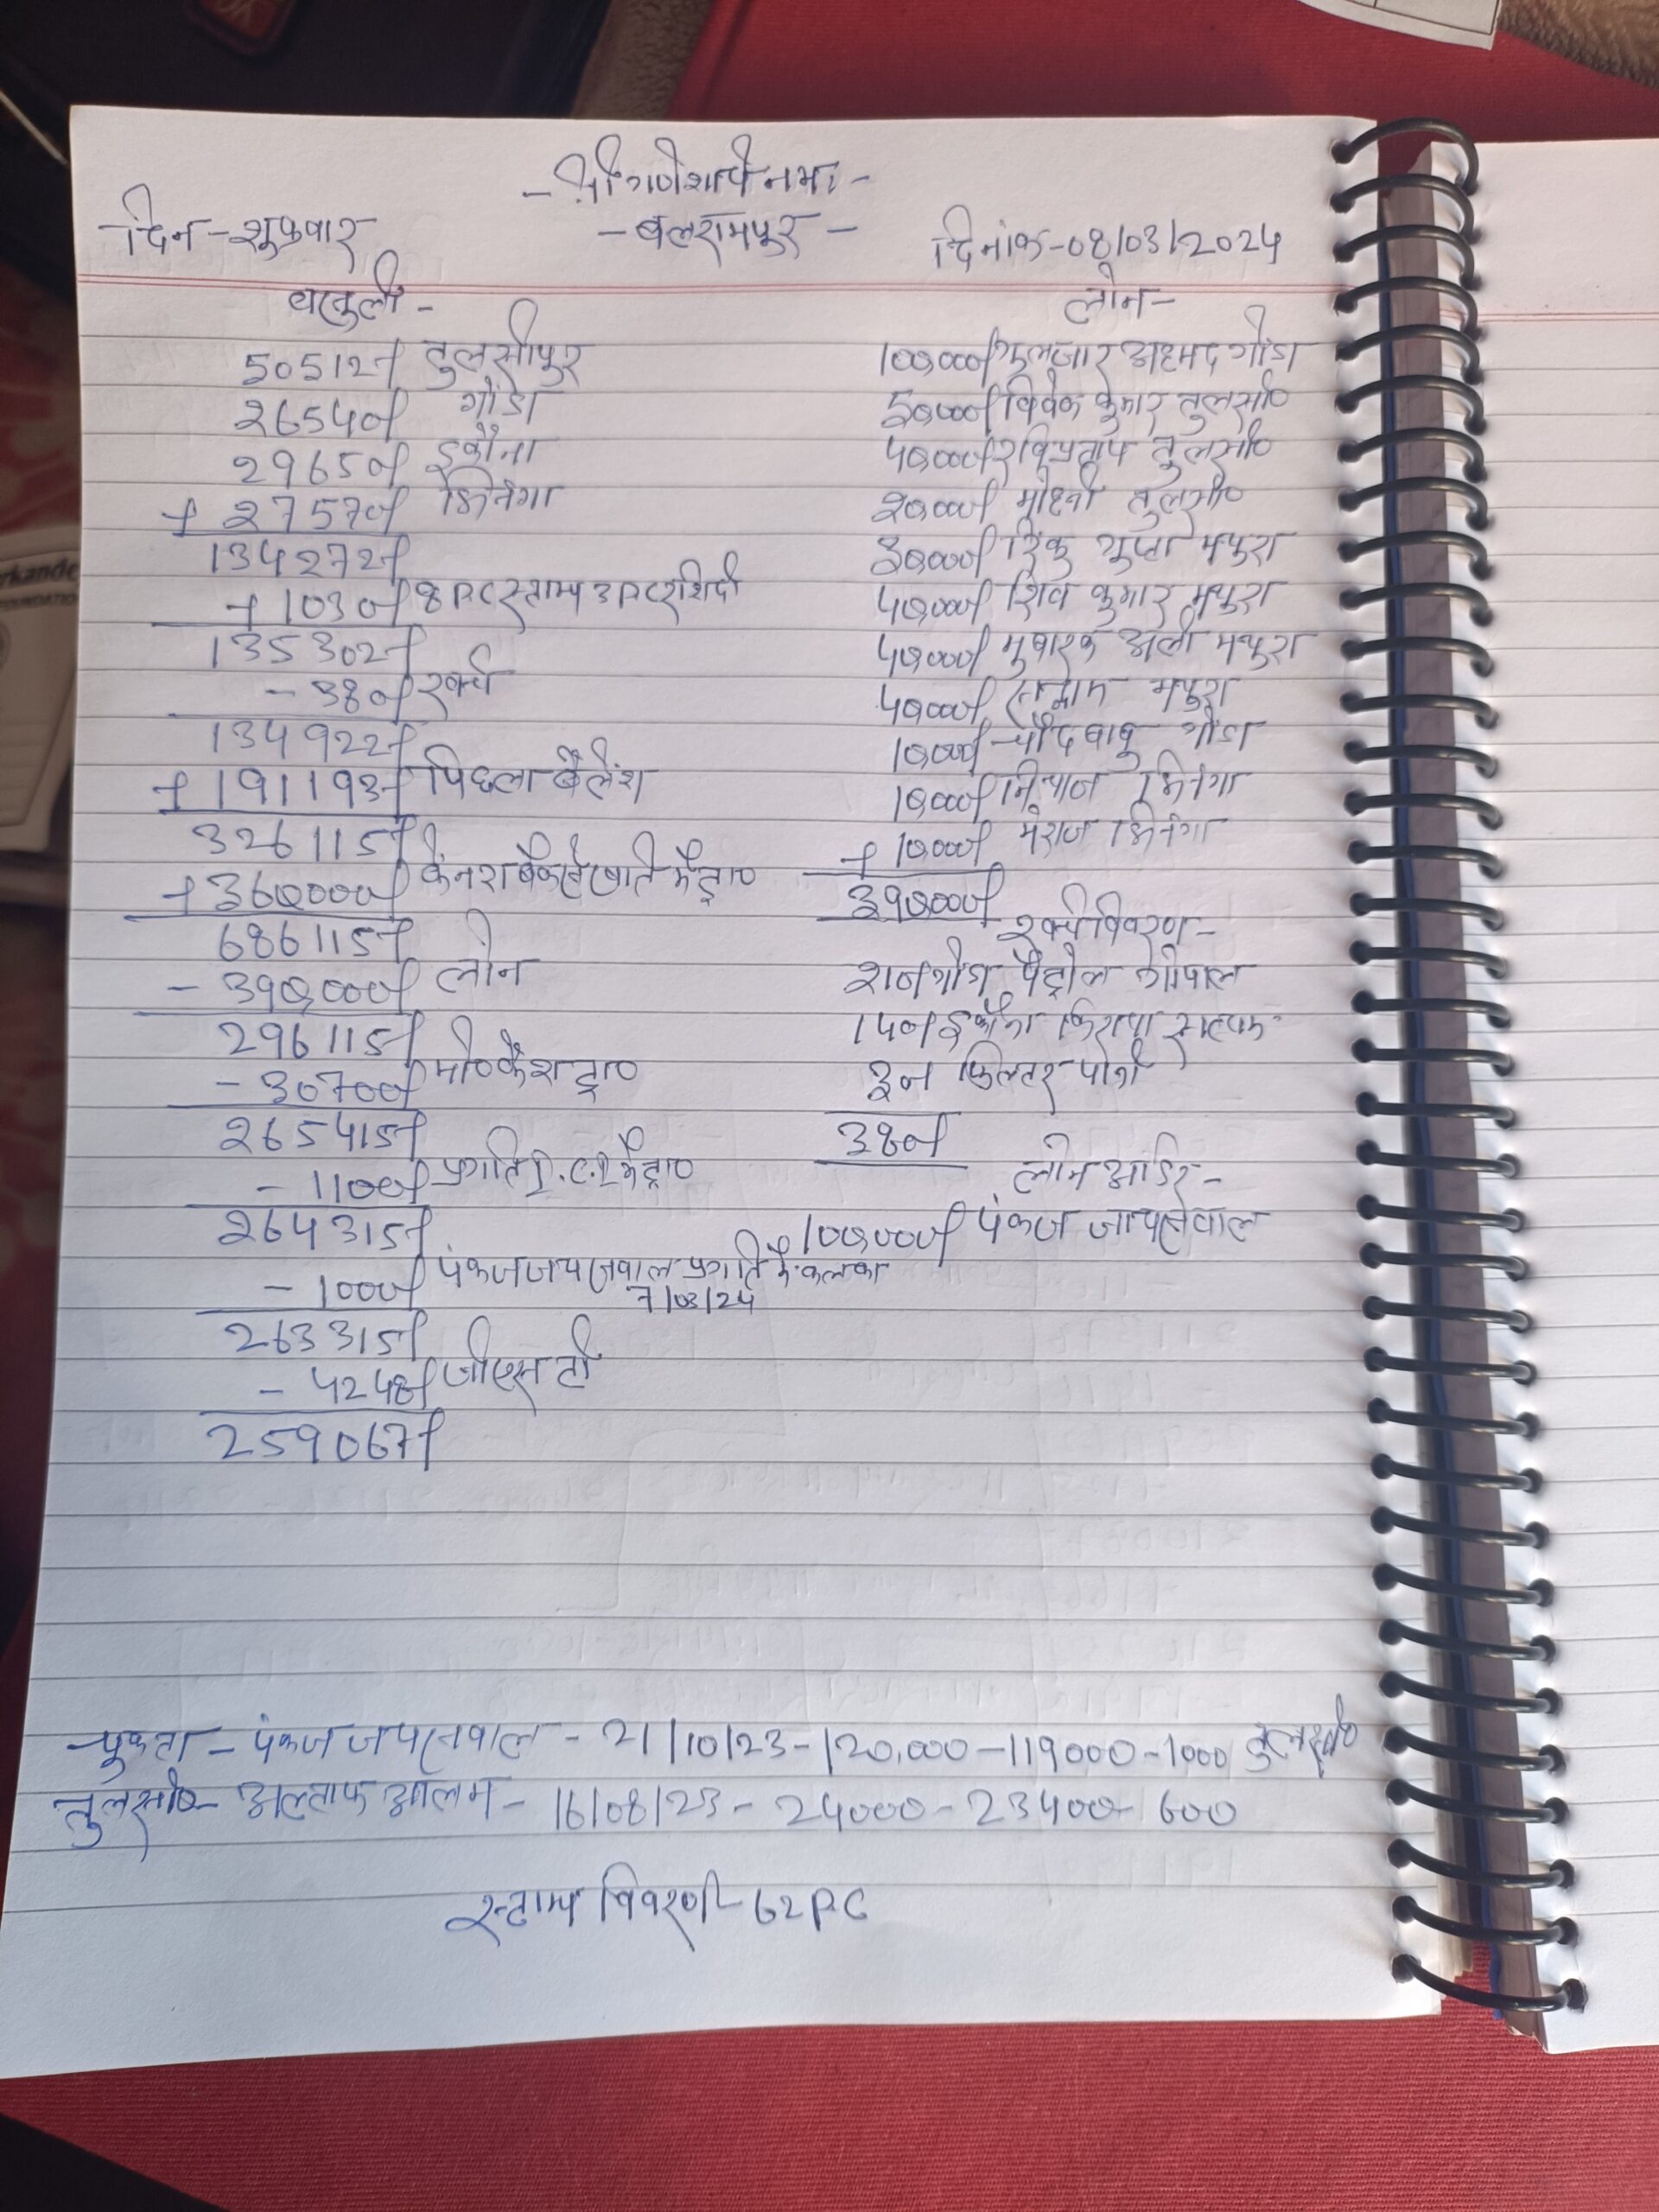 - श्री गणेशाये नमः -
दिन - शुक्रवार - बलरामपुर - दिनांक - 08/03/2024
वसुली -
50512/ तुलसीपुर
26540/ गोंडा
29650/ इकौना
+ 27570/ भिनगा
134272/
+ 1030/ 8 PC स्टाम्प 3 PC रशिदी
135302/
- 380/ खर्च
134922/
+ 191193/ पिछला बैलेंश
326115/
+ 360000/ केनरा बैंक से खाते में ट्रा०
686115/
- 390,000/ लोन
296115/
- 30700/ मो० कैश ट्रा०
265415/
- 1100/ प्रगति I.C.I में ट्रा०
264315/
- 1000/ पंकज जयसवाल प्रगति में कल का
7/03/24
263315/
- 4248/ जीएस टी
259067/
लोन -
100,000/ गुलजार अहमद गोंडा
50,000/ विवेक कुमार तुलसी०
40,000/ रवि प्रताप तुलसी०
20,000/ तुलसी०
30,000/ रिंकु गुप्ता मथुरा
40,000/ शिव कुमार मथुरा
40,000/ मुबारक अली मथुरा
40,000/ मथुरा
10,000/ चाँद बाबु गोंडा
10,000/ भिनगा
+ 10,000/ मेराज भिनगा
390,000/
खर्च विवरण -
पेट्रोल गोपाल
150/ इकौना किराया
30/ फिल्टर पानी
380/
लोन आडर -
100,000/ पंकज जायसवाल
चुकता - पंकज जयसवाल - 21/10/23 - 120,000 - 119000 - 1000 तुलसी०
तुलसी० - अल्ताफ आलम - 16/08/23 - 24000 - 23400 - 600
स्टाम्प विवरण - 62 PC